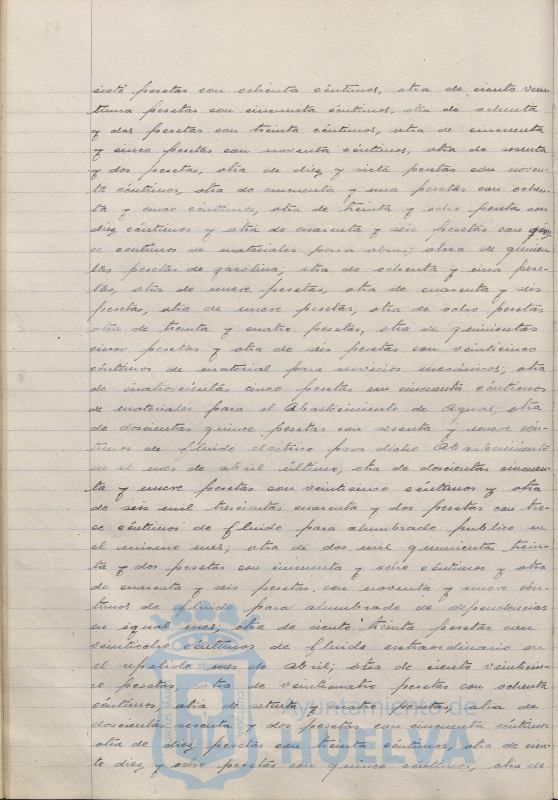 siete pesetas con ochenta céntimos, otra de ciento vein
tiuna pesetas con cincuenta céntimos, otra de ochenta
y dos pesetas con treinta céntimos, otra de cincuenta
y cinco pesetas con noventa céntimos, otra de sesenta
y dos pesetas, otra de diez y siete pesetas con noven-
ta céntimos, otra de cincuenta y una pesetas con ochen-
ta y cinco céntimos, otra de treinta y ocho pesetas con
diez céntimos y otra de cuarenta y seis pesetas con quin
ce céntimos de materiales para obras; otra de quinien
tas pesetas de gasolina; otra de ochenta y una pese-
tas, otra de nueve pesetas, otra de cuarenta y seis
pesetas, otra de nueve pesetas, otra de ocho pesetas
otra de treinta y cuatro pesetas, otra de quinientas
cinco pesetas y otra de seis pesetas con veinticinco
céntimos de material para servicios mecánicos; otra
de cuatrocientas cinco pesetas con cincuenta céntimos
de materiales para el Abastecimiento de Aguas; otra
de doscientas quince pesetas con sesenta y nueve cén-
timos de fluido electrico para dicho Abastecimiento
en el mes de abril último; otra de doscientas cincuen-
ta y nueve pesetas con veinticinco céntimos y otra
de seis mil trescientas cuarenta y dos pesetas con tre-
ce céntimos de fluido para alumbrado publico en
el mismo mes; otra de dos mil quinientas trein-
ta y dos pesetas con cincuenta y ocho céntimos y otra
de cuarenta y seis pesetas con noventa y nueve cén-
timos de fluido para alumbrado de dependencias
en igual mes; otra de ciento treinta pesetas con
veintiocho céntimos de fluido extraordinario en
el repetido mes de Abril; otra de ciento veinticin-
co pesetas, otra de veinticuatro pesetas con ochenta
céntimos, otra de setenta y cuatro pesetas, otra de
doscientas sesenta y dos pesetas con cincuenta céntimos
otra de diez pesetas con treinta céntimos, otra de cien-
to diez y ocho pesetas con quince céntimos, otra de
Ayuntamiento de
HUELVA